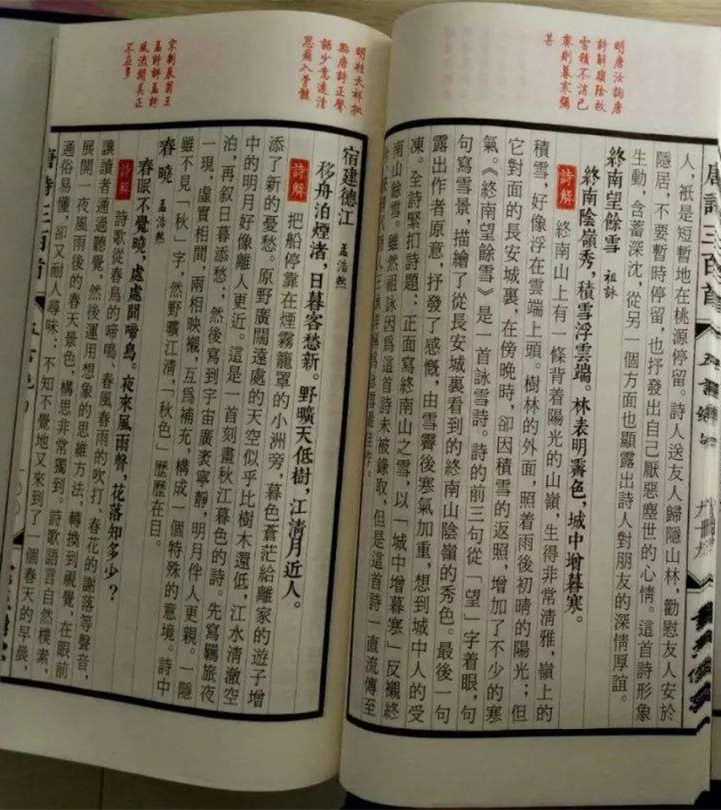 唐詩三百首
人，祇是短暫地在桃源停留。詩人送友人歸隱山林，勸慰友人安於
隱居，不要暫時停留，也抒發出自己厭惡塵世的心情。這首詩形象
生動，含蓄深沈，從另一個方面也顯露出詩人對朋友的深情厚誼。
明唐汝詢唐
詩解寢陰故
雪積不消巳
霽則暮寒彌
甚
終南望餘雪 祖詠
終南陰嶺秀，積雪浮雲端。林表明霽色，城中增暮寒。
詩解 終南山上有一條背着陽光的山嶺，生得非常清雅，嶺上的
積雪，好像浮在雲端上頭。樹林的外面，照着雨後初晴的陽光；但
它對面的長安城裏，在傍晚時，卻因積雪的返照，增加了不少的寒
氣。《終南望餘雪》是一首詠雪詩。詩的前三句從「望」字着眼，句
句寫雪景，描繪了從長安城裏看到的終南山陰嶺的秀色。最後一句
露出作者原意，抒發了感慨，由雪霽後寒氣加重，想到城中人的受
凍。全詩緊扣詩題：正面寫終南山之雪，以「城中增暮寒」反襯終
南山餘雪。雖然祖詠因爲這首詩未被錄取，但是這首詩一直流傳至
爲詠雪最佳作。
明桂天祥批
點唐詩正聲
語少意遠清
思痛入骨髓
宿建德江 孟浩然
移舟泊煙渚，日暮客愁新。野曠天低樹，江清月近人。
詩解 把船停靠在煙霧籠罩的小洲旁，暮色蒼茫給離家的遊子增
添了新的憂愁。原野廣闊遠處的天空似乎比樹木還低，江水清澈空
中的明月好像離人更近。這是一首刻畫秋江暮色的詩。先寫羈旅夜
泊，再叙日暮添愁；然後寫到宇宙廣袤寧靜，明月伴人更親。一隱
一現，虛實相間，兩相映襯，互爲補充，構成一個特殊的意境。詩中
雖不見「秋」字，然野曠江清，「秋色」歷歷在目。
宋劉辰翁王
孟詩評孟詩
風流閒美正
不在多
春曉 孟浩然
春眠不覺曉，處處聞啼鳥。夜來風雨聲，花落知多少？
詩解 詩歌從春鳥的啼鳴、春風春雨的吹打、春花的謝落等聲音，
讓讀者通過聽覺，然後運用想象的思維方法，轉換到視覺，在眼前
展開一夜風雨後的春天景色，構思非常獨到。詩歌語言自然樸素，
通俗易懂，卻又耐人尋味：不知不覺地又來到了一個春天的早晨，
唐詩三百首